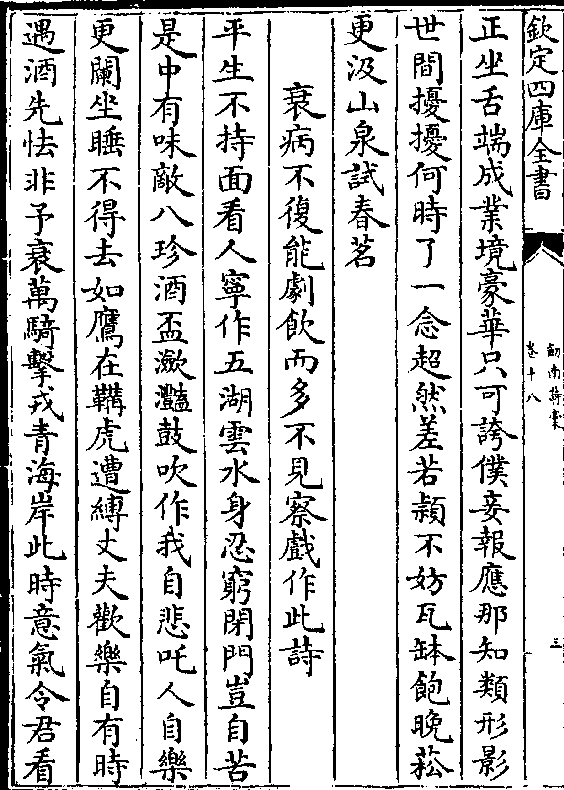 欽定四庫全書
劔南詩稾
卷十八
三
正坐舌端成業境豪華只可誇僕妾報應那知類形影
世間擾擾何時了一念超然差若頴不妨瓦缽飽晚菘
更汲山泉試春茗
衰病不復能劇飲而多不見察戲作此詩
平生不持面看人寧作五湖雲水身忍窮閉門豈自苦
是中有味敵八珍酒盃瀲灩鼓吹作我自悲吒人自樂
更闌坐睡不得去如鷹在鞲虎遭縛丈夫歡樂自有時
遇酒先怯非予衰萬騎擊戎青海岸此時意氣令君看